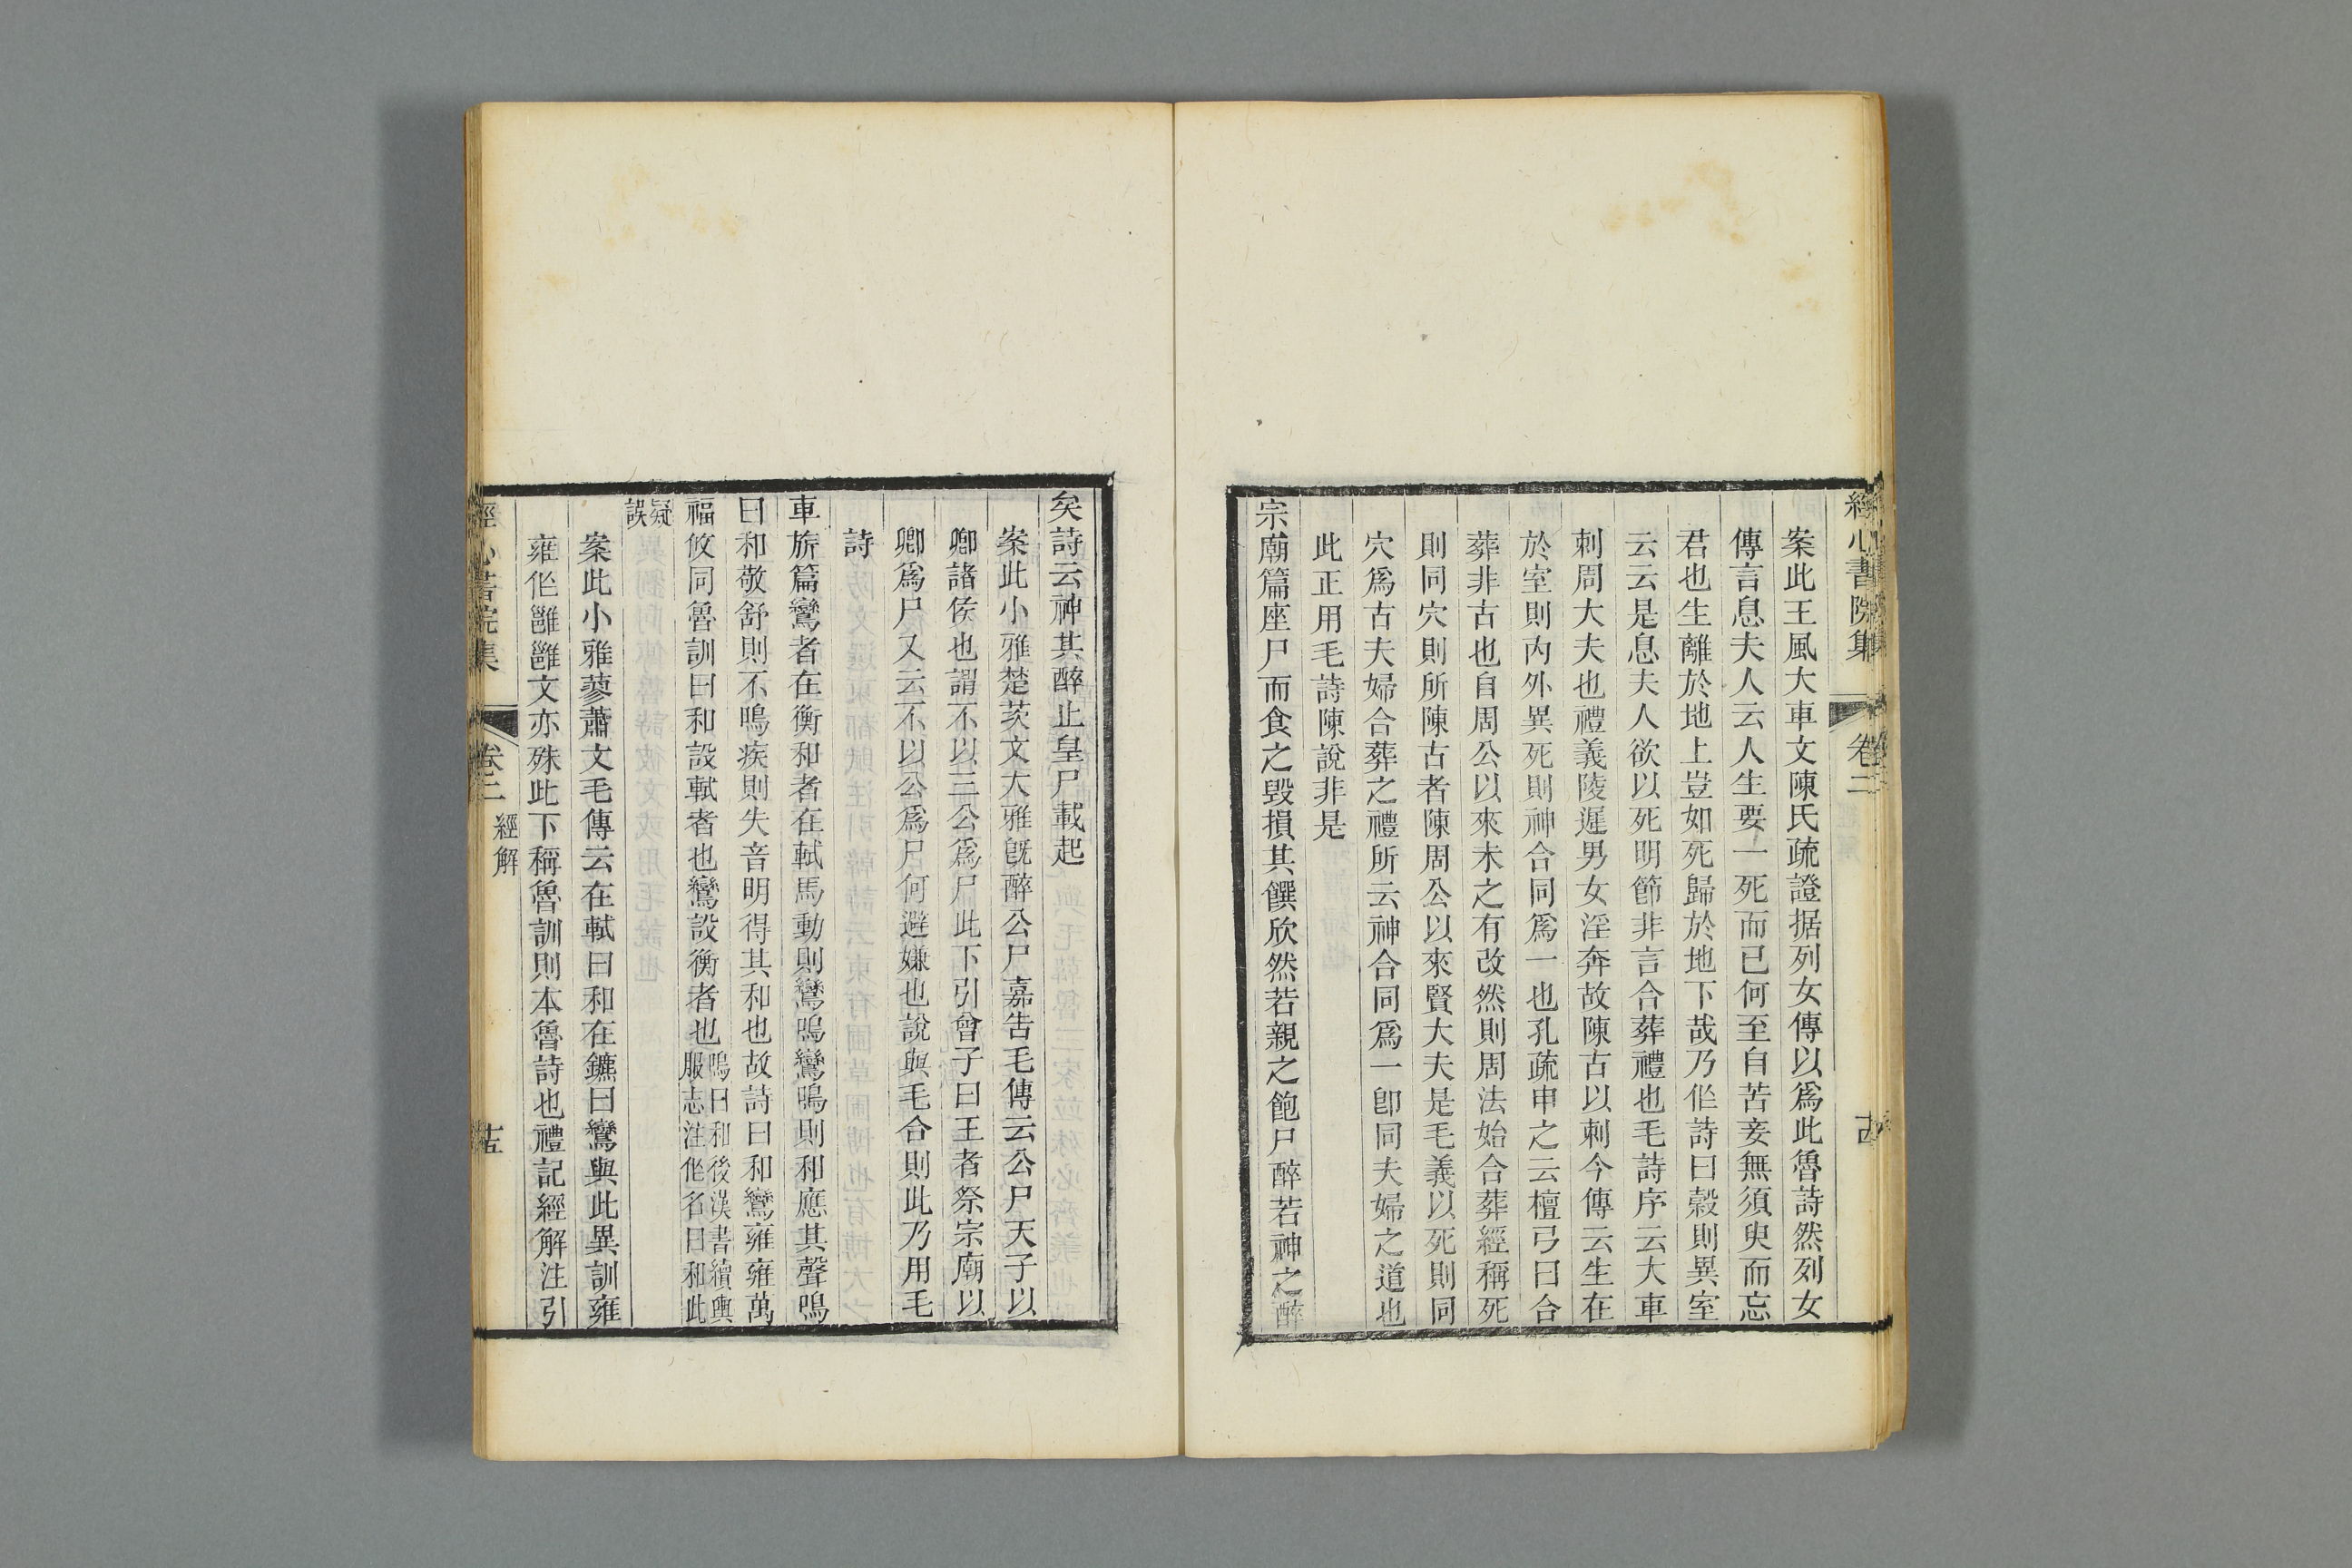 經心書院集 卷二 古
案此王風大車文陳氏疏證据列女傳以爲此魯詩然列女
傳言息夫人云人生要一死而已何至自苦妾無須臾而忘
君也生離於地上豈如死歸於地下哉乃作詩曰縠則異室
云云是息夫人欲以死明節非言合葬禮也毛詩序云大車
刺周大夫也禮義陵遲男女淫奔故陳古以刺今傳云生在
於室則內外異死則神合同爲一也孔疏申之云檀弓曰合
葬非古也自周公以來未之有改然則周法始合葬經稱死
則同穴則所陳古者陳周公以來賢大夫是毛義以死則同
穴爲古夫婦合葬之禮所云神合同爲一卽同夫婦之道也
此正用毛詩陳說非是
宗廟篇座尸而食之毀損其饌欣然若親之飽尸醉若神之醉
矣詩云神其醉止皇尸載起
案此小雅楚茨文大雅旣醉公尸嘉告毛傳云公尸天子以
卿諸侯也謂不以三公爲尸此下引曾子曰王者祭宗廟以
卿爲尸又云不以公爲尸何避嫌也說與毛合則此乃用毛
詩
車旂篇鸞者在衡和者在軾馬動則鸞鳴鸞鳴則和應其聲鳴
曰和敬舒則不鳴疾則失音明得其和也故詩曰和鸞雍雍萬
福攸同魯訓曰和設軾者也鸞設衡者也鳴曰和後漢書續輿
服志注作名曰和此
疑
誤
案此小雅蓼蕭文毛傳云在軾曰和在鑣曰鸞與此異訓雍
雍作雝雝文亦殊此下稱魯訓則本魯詩也禮記經解注引
經心書院集 卷二 經解 十五